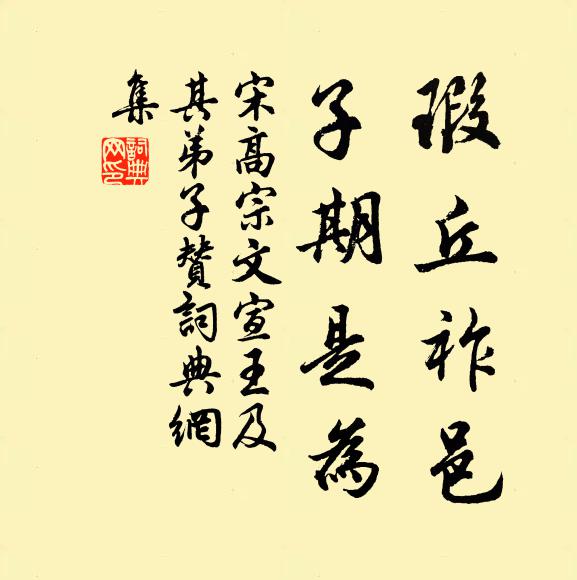 瑕丘祚邑
子期是為
宋高宗文宣王及
其弟子贊詞典網
集
詞典
网印